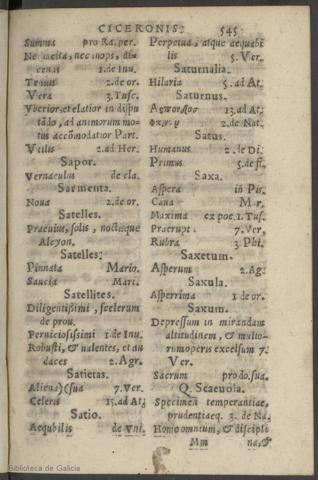 CICERONIS. 545
Summa pro Ra. per.
Ne incisa, nec inops, di-
cenais 1. de Inu.
Tenuis 2. de or.
Vera 3. Tusc.
Vberior, et latior in dispu
tādo, ad animorum mo-
tus accōmodatior Part.
Vtilis 2. ad Her.
Sapor.
Vernaculus de cla.
Sarmenta.
Noua 2. de or.
Satelles.
Praeuius, solis, noctisque
Alcyon.
Satelles:
Pinnata Mario.
Saucia Mari.
Satellites.
Diligentissimi, scelerum
de prou.
Perniciosissimi 1. de Inu.
Robusti, & ualentes, et au
daces 2. Agr.
Satietas.
Aliena)(sua 7. Ver.
Celeris 15. ad At;
Satio.
Aequbilis de Vni.
Perpetua, atque aequabi
lis 5. Ver.
Saturnalia.
Hilaria 5. ad At:
Saturnus.
13. ad At:
2. de Nat.
Satus.
Humanus 2. de Di.
Primus 5. de fi.
Saxa.
Aspera in Pis.
Caua Mar.
Maxima ex poe. 1. Tus.
Praerupt: 7. Ver,
Rubra 3. Phi.
Saxetum.
Asperum 2. Ag:
Saxula.
Asperrima 1 de or.
Saxum.
Depressum in mirandam
altitudinem, & multo-
rum operis excelsum 7.
Ver.
Sacrum pro do. sua.
Q. Scaeuola.
Specimen temperantiae,
prudentiaeq. 3. de Na.
Homo omnium, & discipli
Mm na, &
Biblioteca de Galicia